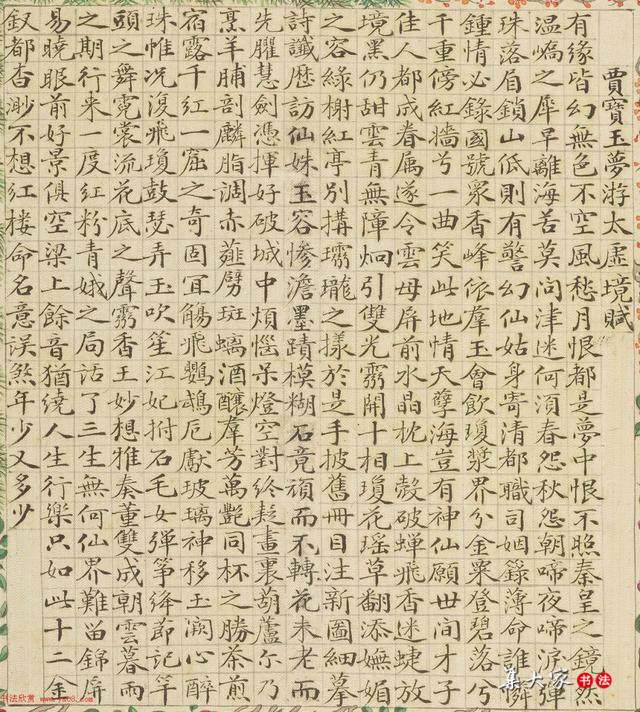 賈寶玉夢游太虛境賦
有緣皆幻無色不空風愁月恨都是夢中恨不照秦皇之鏡然
温嶠之犀早離海苦莫問津迷何須春怨秋怨朝啼夜啼淚彈
珠落眉鎖山低則有警幻仙姑身寄清都職司姻籙薄命誰憐
鍾情必錄國號眾香峰依羣玉會飲瓊漿界分金粟登碧落兮
千重傍紅墻兮一曲笑此地情天孽海豈有神仙願世間才子
佳人都成眷属遂令雲母屏前水晶枕上殼破蟬飛香迷蜨放
境黑仍甜雲青無障炯引雙光霧開十相瓊花瑶草翻添嫵媚
之容綠樹紅亭別搆瓏之樣於是手披舊冊目注新圖細摹
詩讖歷訪仙姝玉容慘澹墨蹟模糊石竟頑而不轉花未老而
先臞慧劍憑揮好破城中煩惱呆燈空對終疑畫裏葫蘆尓乃
烹羊脯剖麟脂調赤薤劈斑螭酒釀羣芳萬艷同杯之勝茶煎
宿露千紅一窟之奇固宜觴飛鸚鵡巵獻玻璃神移玉闕心醉
珠帷况復飛瓊鼓瑟弄玉吹笙江妃拊石毛女彈箏絳節記竿
頭之舞霓裳流花底之聲霧香王妙想雅奏董雙成朝雲暮雨
之期行來一度紅粉青娥之局話了三生無何仙界難留錦屏
易曉眼前好景俱空梁上餘音猶繞人生行樂只如此十二金
釵都杳渺不想紅樓命名意误煞年少又多少
集大家
书法
书法欣赏
www.yac8.com